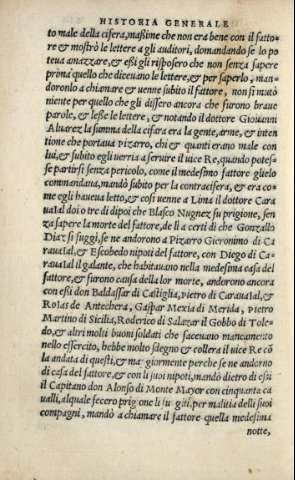 HISTORIA GENERALE
to male della cifera, maßime che non era bene con il fatto-
re & mostrò le lettere a gli auditori, domandando se lo po
teua amazzare, & eßi gli risposero che non senza sapere
prima quello che diceuano le lettere, & per saperlo, man-
doronlo a chiamare & uenne subito il fattore, non si mutò
niente per quello che gli dissero ancora che furono braue
parole, & lesse le lettere, & notando il dottore Giouanni
Aluarez la summa della cifara era la gente, arme, & inten
tione che portaua Pizarro, chi & quanti erano male con
lui, & subito egli uerria a seruire il uice Re, quando potes-
se partirsi senza pericolo, come il medesimo fattore glielo
commandaua, mandò subito per la contracifera, & era co=
me egli haueua letto, & cosi uenne a Lima il dottore Cara
uaial doi o tre dipoi che Blasco Nugnez su prigione, sen
za sapere la morte del fattore, de lì a certi dì che Gonzallo
Diaz si fuggì, se ne andorono a Pizarro Gieronimo di Ca
rauaial, & Escobedo nipoti del fattore, con Diego di Ca-
rauaial il galante, che habitauano nella medesima casa del
fattore, & furono causa della lor morte, andorono ancora
con eßi don Baldassar di Castiglia, Pietro di Carauaial, &
Roias de Antechera, Gaspar Mexia di Merida, Pietro
Martino di Sicilia, Roderico di Salazar il Gobbo di Tole-
do, & altri molti buoni soldati che faceuano mancamento
nello essercito, hebbe molto sdegno & collera il uice Re cō
la andata di questi, & maggiormente perche se ne andorno
di casa del fattore, & con li suoi nipoti, mandò dietro di eßi
il Capitano don Alonso di Monte Mayor con cinquanta ca
ualli, al quale fecero prigione li per malitia delli suoi
compagni, mandò a chiamare il fattore quella medesima
notte,